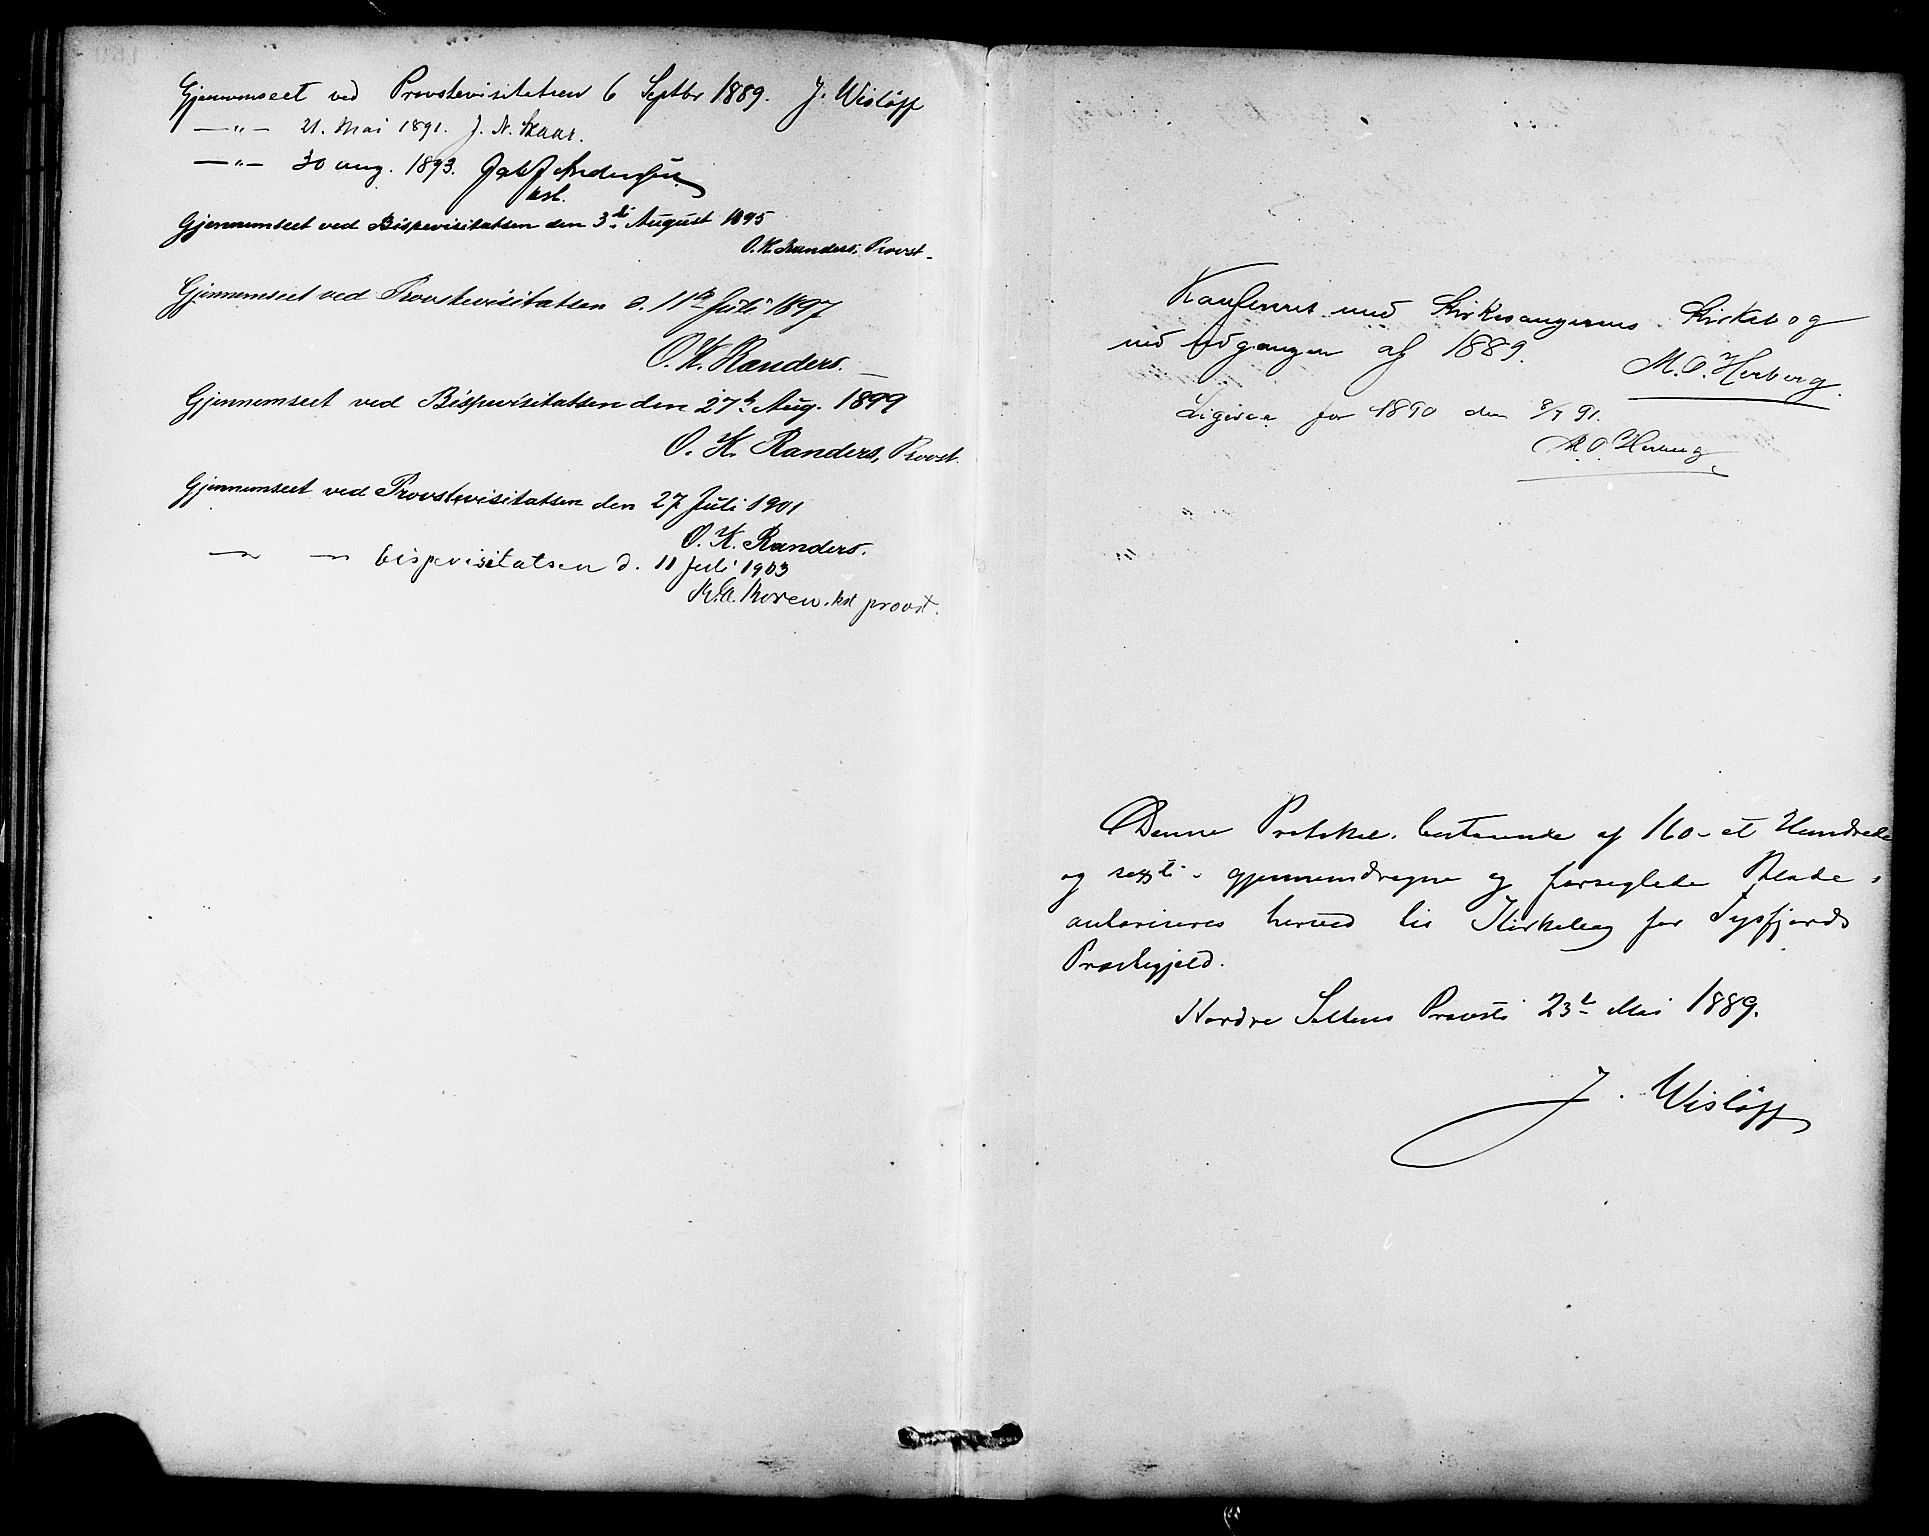 Gjennemseet ved Provstevisitatsen 6 Septbr 1889. J. Wisløff
—„— 21. Mai 1891. J. N. Skaar.
—„— 30 aug. 1893. Jak J Anderssen
kst.
Gjennemseet ved Bispevisitatsen den 3die August 1895
O. K. Randers, Provst.
Gjennemseet ved Provstevisitatsen d. 11te Juli 1897
O. K. Randers.
Gjennemseet ved Bispevisitatsen den 27de Aug. 1899
O. K. Randers, Provst.
Gjennemseet ved Provstevisitatsen den 27 Juli 1901
O. K. Randers.
—„— —„— bispevisitatsen d. 11 Juli 1903
K. Koren. kst provst.
Konfereret med Kirkesangerens Kirkebog
ved Udgangen af 1889.
M. O. Herberg.
Ligesaa for 1890 den 8/7 91.
M. O. Herberg
Denne Protokol, bestaaende af 160 - et Hundrede
og sexti - gjennemdragne og forseglede Blade,
autoriseres herved til Kirkebog for Tysfjords
Præstegjeld.
Nordre Saltens Provsti 23de Mai 1889.
J. Wisløff